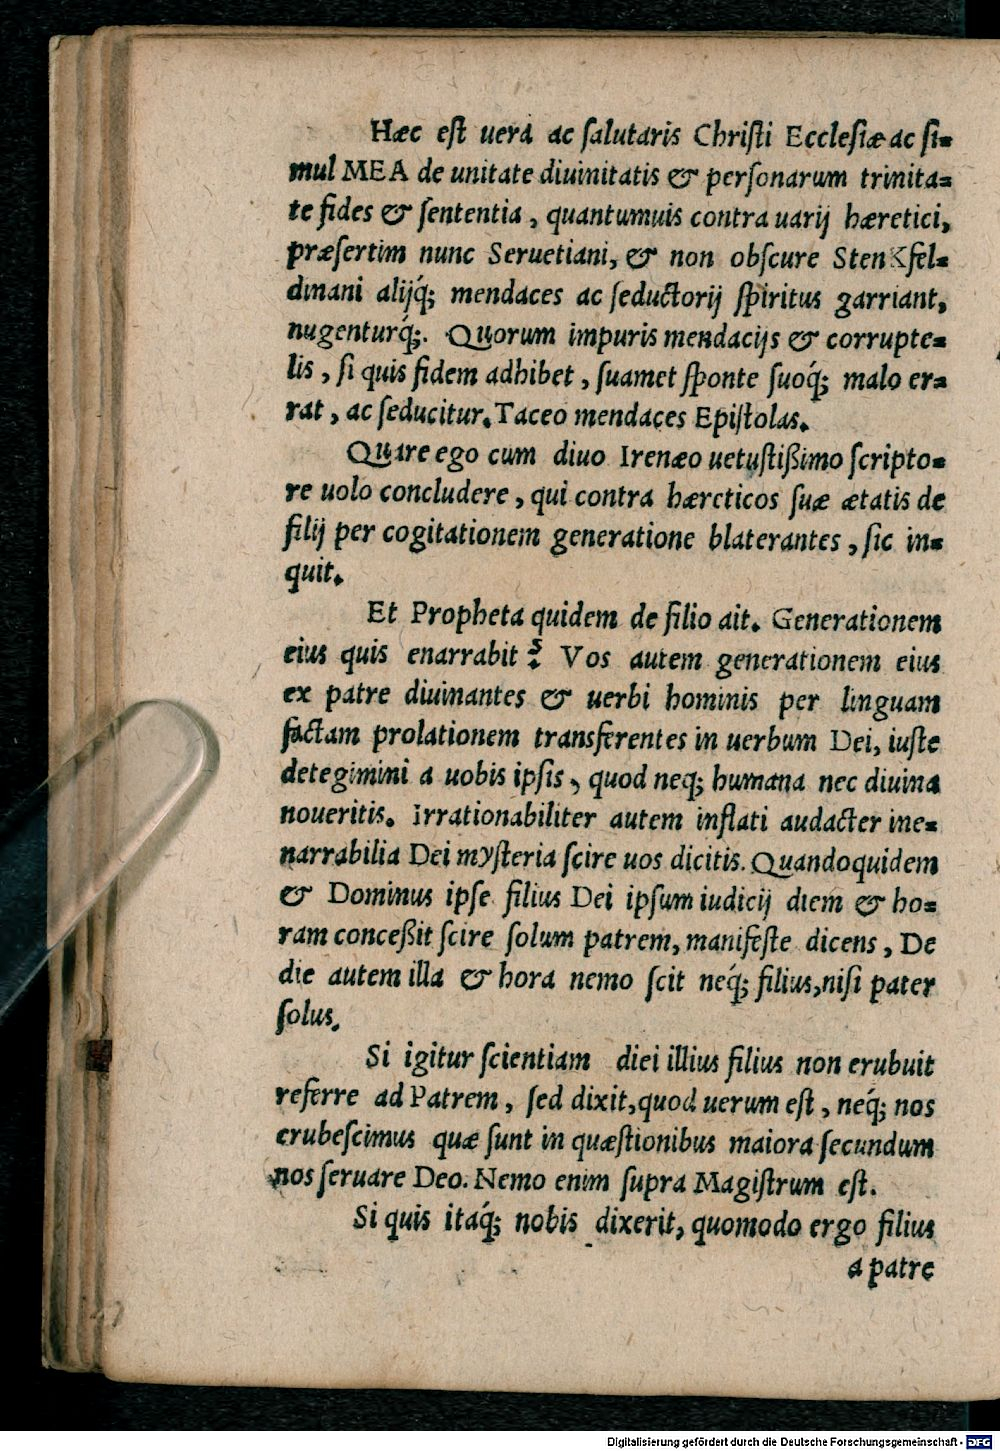 Hæc est uera ac salutaris Christi Ecclesiæ ac si=
mul MEA de unitate diuinitatis & personarum trinita=
te fides & sententia, quantumuis contra uarij hæretici,
præsertim nunc Seruetiani, & non obscure StenKfel=
dinani alijq́; mendaces ac seductorij spiritus garriant,
nugenturq́;. Quorum impuris mendacijs & corrupte=
lis, si quis fidem adhibet, suamet sponte suoq́; malo er=
rat, ac seducitur. Taceo mendaces Epistolas.
Quare ego cum diuo Irenæo uetustißimo scripto=
re uolo concludere, qui contra hæreticos suæ ætatis de
filij per cogitationem generatione blaterantes, sic in=
quit.
Et Propheta quidem de filio ait. Generationem
eius quis enarrabit? Vos autem generationem eius
ex patre diuinantes & uerbi hominis per linguam
factam prolationem transferentes in uerbum Dei, iuste
detegimini a uobis ipsis, quod neq; humana nec diuina
noueritis. Irrationabiliter autem inflati audacter ine=
narrabilia Dei mysteria scire uos dicitis. Quandoquidem
& Dominus ipse filius Dei ipsum iudicij diem & ho=
ram conceßit scire solum patrem, manifeste dicens, De
die autem illa & hora nemo scit neq́; filius, nisi pater
solus.
Si igitur scientiam diei illius filius non erubuit
referre ad Patrem, sed dixit, quod uerum est, neq́; nos
erubescimus quæ sunt in quæstionibus maiora secundum
nos seruare Deo. Nemo enim supra Magistrum est.
Si quis itaq́; nobis dixerit, quomodo ergo filius
a patre
Digitalisierung gefördert durch die Deutsche Forschungsgemeinschaft - DFG